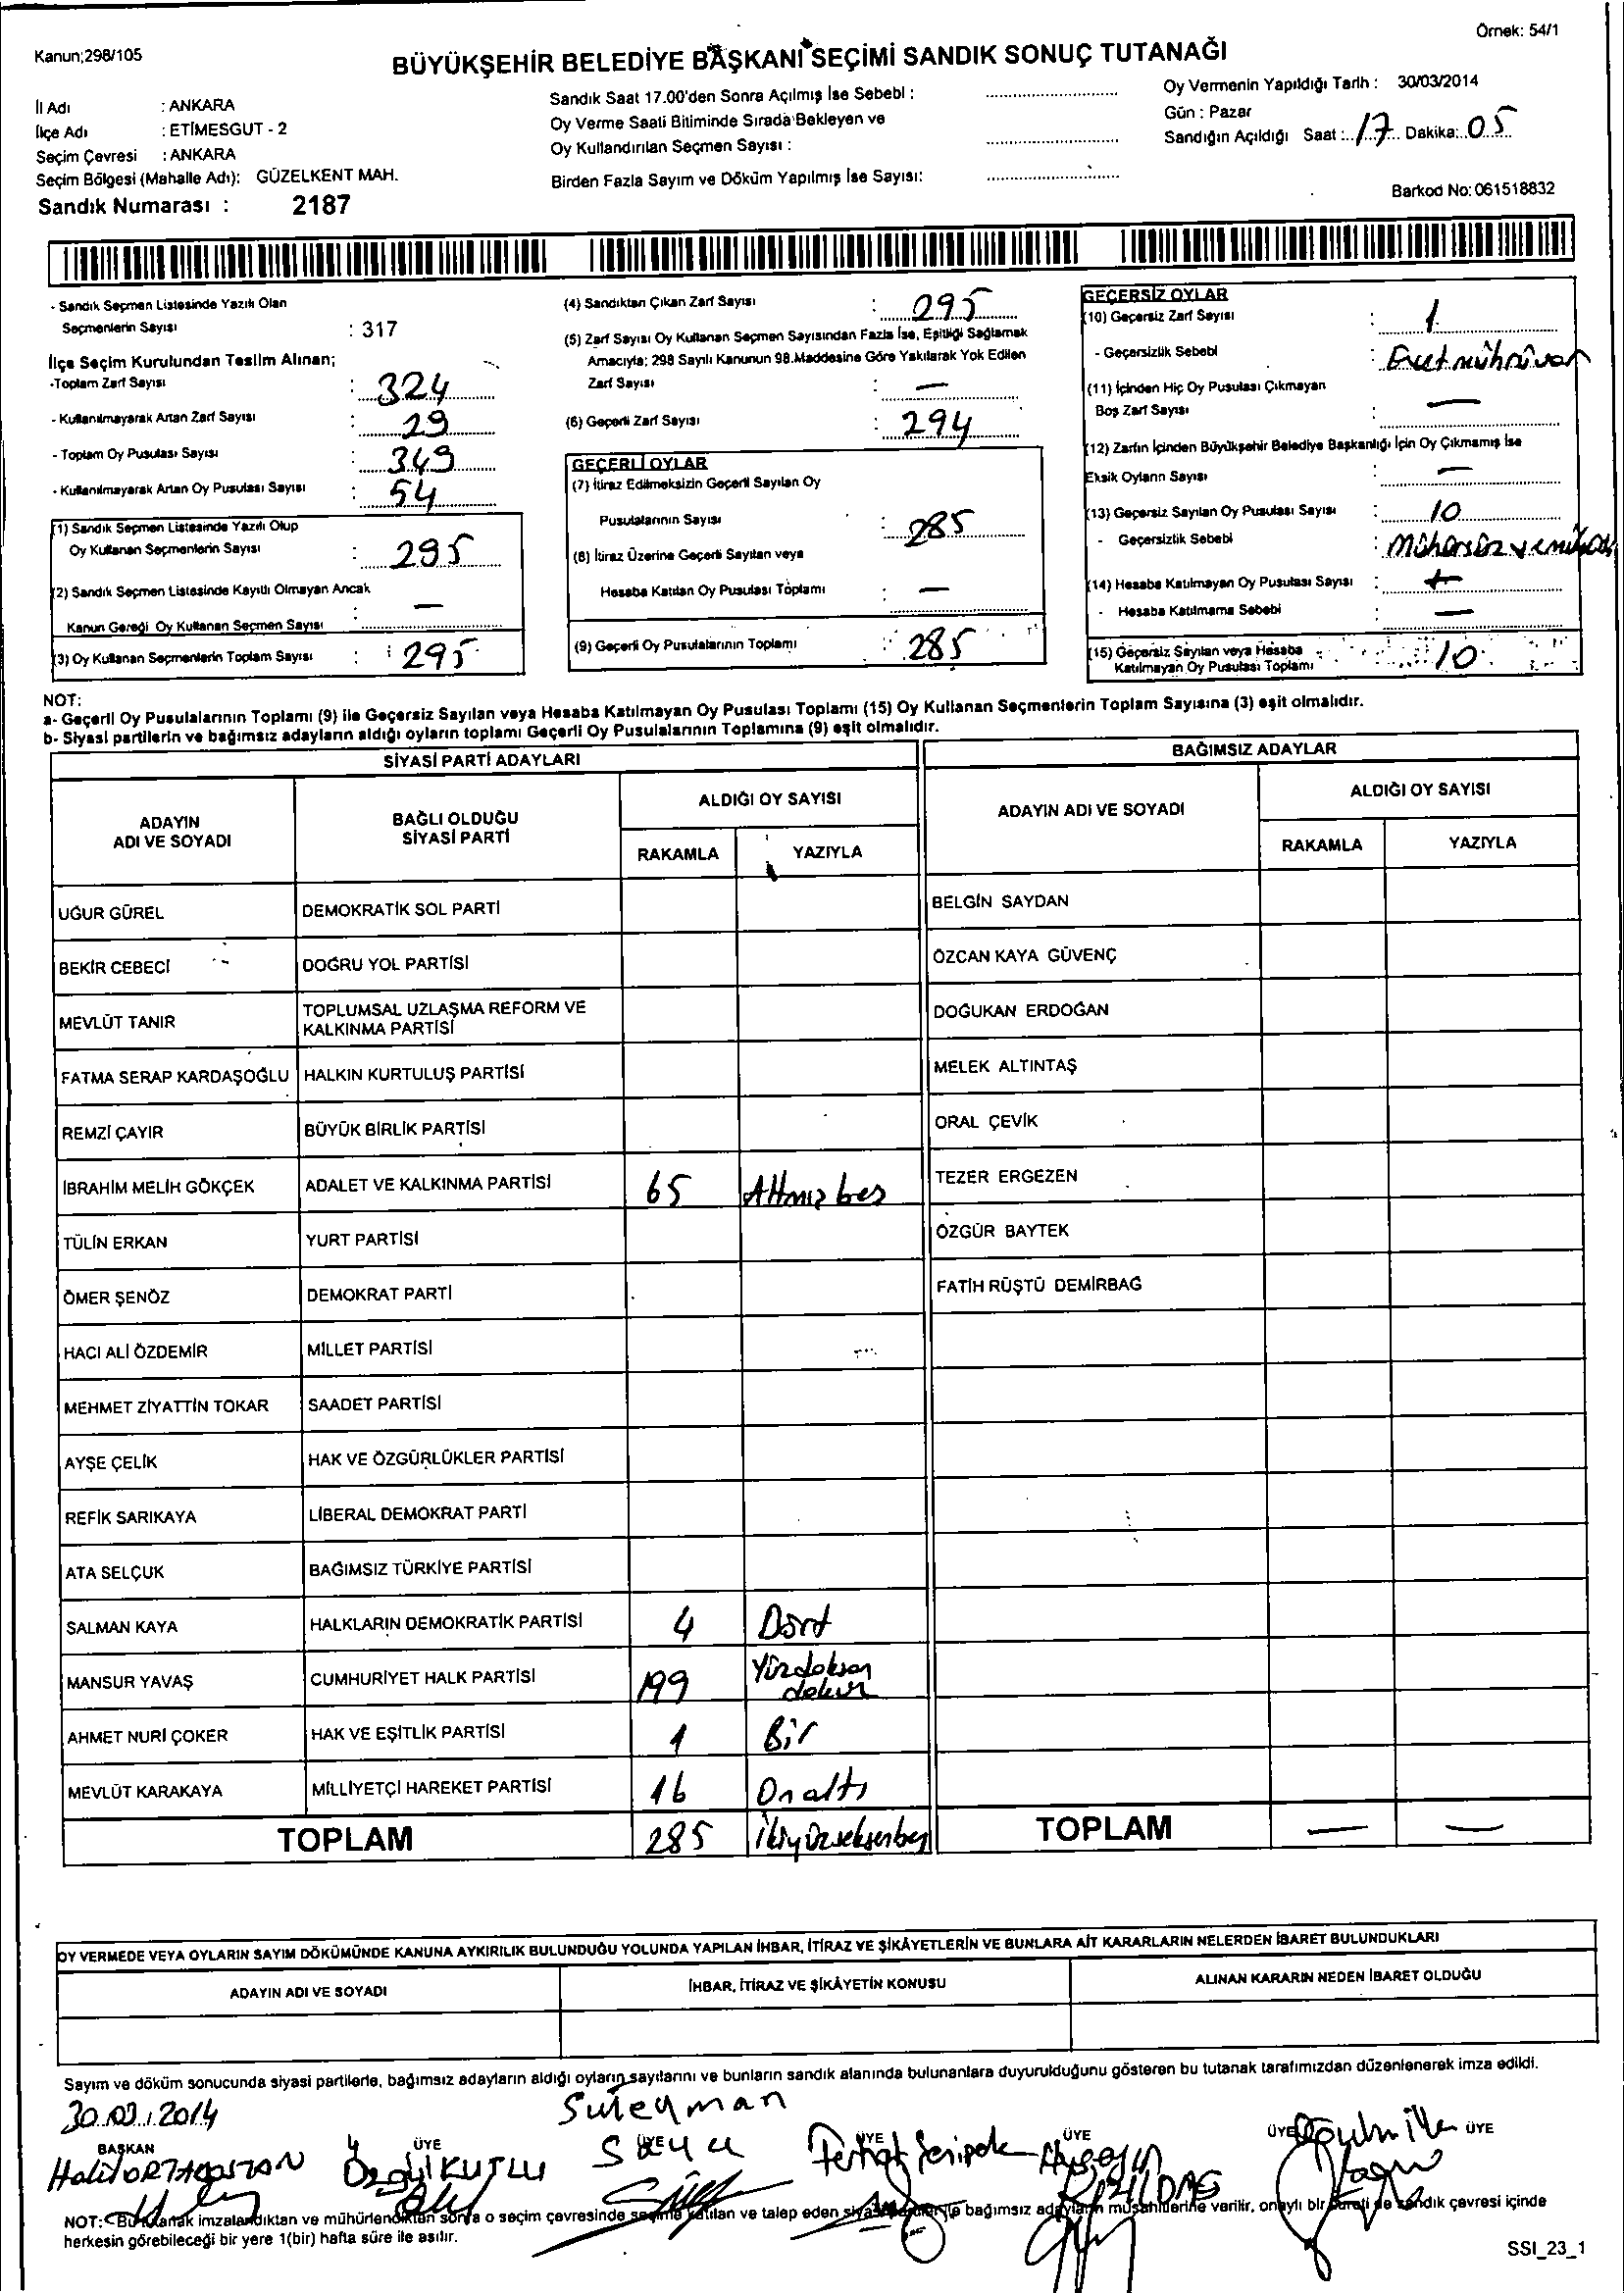 Örnek: 54/1
Kanun;298/105
BÜYÜKŞEHİR BELEDİYE BAŞKANI SEÇİMİ SANDIK SONUÇ TUTANAĞI
İl Adı : ANKARA
İlçe Adı : ETİMESGUT - 2
Seçim Çevresi : ANKARA
Seçim Bölgesi (Mahalle Adı): GÜZELKENT MAH.
Sandık Numarası : 2187
Sandık Saat 17.00'den Sonra Açılmış İse Sebebi :
Oy Verme Saati Bitiminde Sırada Bekleyen ve
Oy Kullandırılan Seçmen Sayısı :
Birden Fazla Sayım ve Döküm Yapılmış İse Sayısı:
Oy Vermenin Yapıldığı Tarih : 30/03/2014
Gün : Pazar
Sandığın Açıldığı Saat : 17 Dakika: 05
Barkod No: 061518832
- Sandık Seçmen Listesinde Yazılı Olan
Seçmenlerin Sayısı : 317
İlçe Seçim Kurulundan Teslim Alınan;
-Toplam Zarf Sayısı : 324
- Kullanılmayarak Artan Zarf Sayısı : 29
- Toplam Oy Pusulası Sayısı : 349
- Kullanılmayarak Artan Oy Pusulası Sayısı : 54
(1) Sandık Seçmen Listesinde Yazılı Olup
Oy Kullanan Seçmenlerin Sayısı : 295
(2) Sandık Seçmen Listesinde Kayıtlı Olmayan Ancak
Kanun Gereği Oy Kullanan Seçmen Sayısı : —
(3) Oy Kullanan Seçmenlerin Toplam Sayısı : 295
(4) Sandıktan Çıkan Zarf Sayısı : 295
(5) Zarf Sayısı Oy Kullanan Seçmen Sayısından Fazla İse, Eşitliği Sağlamak
Amacıyla; 298 Sayılı Kanunun 98.Maddesine Göre Yakılarak Yok Edilen
Zarf Sayısı : —
(6) Geçerli Zarf Sayısı : 294
GEÇERLİ OYLAR
(7) İtiraz Edilmeksizin Geçerli Sayılan Oy
Pusulalarının Sayısı : 285
(8) İtiraz Üzerine Geçerli Sayılan veya
Hesaba Katılan Oy Pusulası Toplamı : —
(9) Geçerli Oy Pusulalarının Toplamı : 285
GEÇERSİZ OYLAR
(10) Geçersiz Zarf Sayısı : 1
- Geçersizlik Sebebi : Evet mührü var
(11) İçinden Hiç Oy Pusulası Çıkmayan
Boş Zarf Sayısı : —
(12) Zarfın İçinden Büyükşehir Belediye Başkanlığı İçin Oy Çıkmamış İse
Eksik Oyların Sayısı : —
(13) Geçersiz Sayılan Oy Pusulası Sayısı : 10
- Geçersizlik Sebebi :
(14) Hesaba Katılmayan Oy Pusulası Sayısı :
- Hesaba Katılmama Sebebi : —
(15) Geçersiz Sayılan veya Hesaba
Katılmayan Oy Pusulası Toplamı : 10
NOT:
a- Geçerli Oy Pusulalarının Toplamı (9) ile Geçersiz Sayılan veya Hesaba Katılmayan Oy Pusulası Toplamı (15) Oy Kullanan Seçmenlerin Toplam Sayısına (3) eşit olmalıdır.
b- Siyasi partilerin ve bağımsız adayların aldığı oyların toplamı Geçerli Oy Pusulalarının Toplamına (9) eşit olmalıdır.
SİYASİ PARTİ ADAYLARI
ADAYIN ADI VE SOYADI
BAĞLI OLDUĞU SİYASİ PARTİ
ALDIĞI OY SAYISI
RAKAMLA YAZIYLA
UĞUR GÜREL DEMOKRATİK SOL PARTİ
BEKİR CEBECİ DOĞRU YOL PARTİSİ
MEVLÜT TANIR TOPLUMSAL UZLAŞMA REFORM VE
KALKINMA PARTİSİ
FATMA SERAP KARDAŞOĞLU HALKIN KURTULUŞ PARTİSİ
REMZİ ÇAYIR BÜYÜK BİRLİK PARTİSİ
İBRAHİM MELİH GÖKÇEK ADALET VE KALKINMA PARTİSİ 65 Altmış beş
TÜLİN ERKAN YURT PARTİSİ
ÖMER ŞENÖZ DEMOKRAT PARTİ
HACI ALİ ÖZDEMİR MİLLET PARTİSİ
MEHMET ZİYATTİN TOKAR SAADET PARTİSİ
AYŞE ÇELİK HAK VE ÖZGÜRLÜKLER PARTİSİ
REFİK SARIKAYA LİBERAL DEMOKRAT PARTİ
ATA SELÇUK BAĞIMSIZ TÜRKİYE PARTİSİ
SALMAN KAYA HALKLARIN DEMOKRATİK PARTİSİ 4 Dört
MANSUR YAVAŞ CUMHURİYET HALK PARTİSİ 199 Yüzdoksan
dokuz
AHMET NURİ ÇOKER HAK VE EŞİTLİK PARTİSİ 1 Bir
MEVLÜT KARAKAYA MİLLİYETÇİ HAREKET PARTİSİ 16 Onaltı
TOPLAM 285 İkiyüzseksenbeş
BAĞIMSIZ ADAYLAR
ADAYIN ADI VE SOYADI
ALDIĞI OY SAYISI
RAKAMLA YAZIYLA
BELGİN SAYDAN
ÖZCAN KAYA GÜVENÇ
DOĞUKAN ERDOĞAN
MELEK ALTINTAŞ
ORAL ÇEVİK
TEZER ERGEZEN
ÖZGÜR BAYTEK
FATİH RÜŞTÜ DEMİRBAĞ
TOPLAM — —
OY VERMEDE VEYA OYLARIN SAYIM DÖKÜMÜNDE KANUNA AYKIRILIK BULUNDUĞU YOLUNDA YAPILAN İHBAR, İTİRAZ VE ŞİKÂYETLERİN VE BUNLARA AİT KARARLARIN NELERDEN İBARET BULUNDUKLARI
ADAYIN ADI VE SOYADI İHBAR, İTİRAZ VE ŞİKÂYETİN KONUSU ALINAN KARARIN NEDEN İBARET OLDUĞU
Sayım ve döküm sonucunda siyasi partilerle, bağımsız adayların aldığı oyların sayılarını ve bunların sandık alanında bulunanlara duyurulduğunu gösteren bu tutanak tarafımızdan düzenlenerek imza edildi.
30.03.2014
BAŞKAN ÜYE ÜYE ÜYE ÜYE ÜYE ÜYE
Özgül KUTLU
Süleyman
NOT: Bu tutanak imzalandıktan ve mühürlendikten sonra o seçim çevresinde seçime katılan ve talep eden siyasi partiler ile bağımsız adayların müşahitlerine verilir, onaylı bir sureti de sandık çevresi içinde
herkesin görebileceği bir yere 1(bir) hafta süre ile asılır.
SSI_23_1